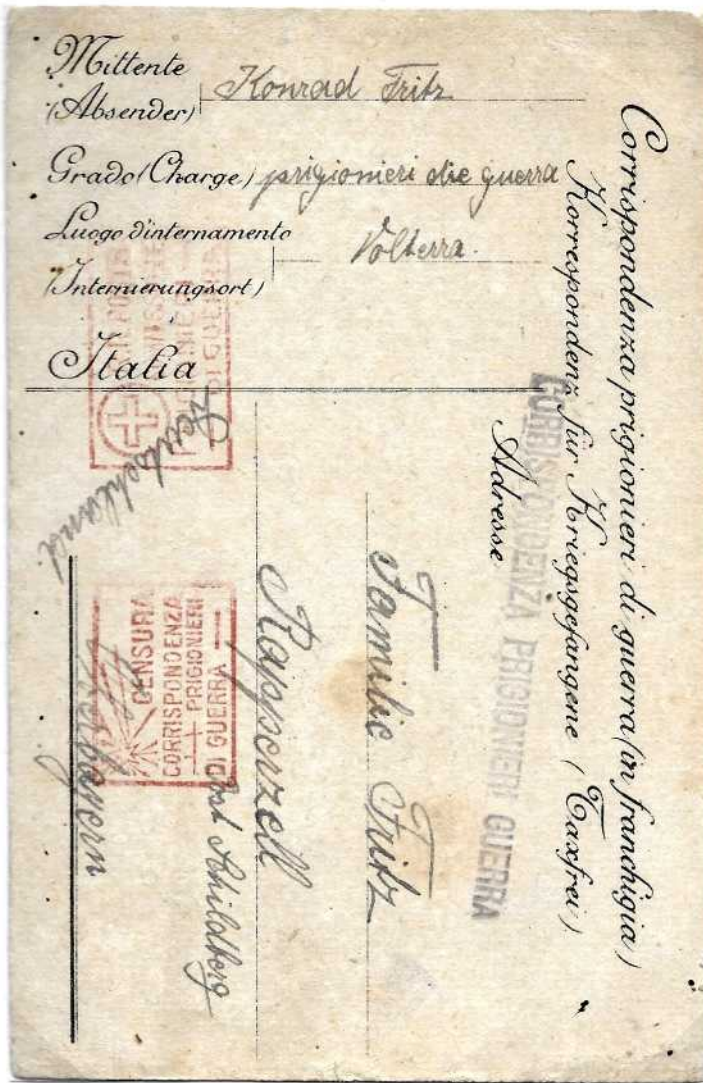 Mittente
(Absender) Konrad Fritz
Grado (Charge) prigionieri die guerra
Luogo d'internamento
(Internierungsort) Volterra.
Italia
Corrispondenza prigionieri di guerra (in franchigia)
Korrespondenz für Kriegsgefangene (Taxfrei)
CORRISPONDENZA PRIGIONIERI GUERRA
Adresse
Familie Fritz
Rapperzell
Post Schildberg
Oberbayern
Deutschland.
CENSURA
CORRISPONDENZA
PRIGIONIERI
DI GUERRA
PRIGIONIERI
DI GUERRA